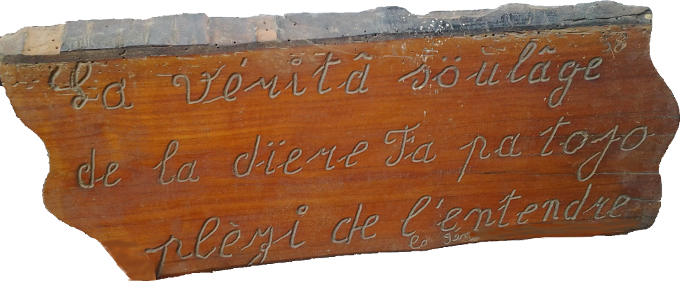 La véritâ söulâge
de la dïere Fa pa tojo
plèzi de l'entendre